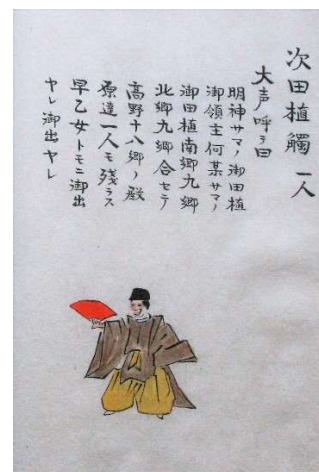 次田植觸一人
大声呼ヲ曰
明神サマノ御田植
御領主何某サマノ
御田植南郷九郷
北郷九郷合セテ
高野十八郷ノ殿
原達一人モ残ラス
早乙女トモニ御出
ヤレ御出ヤレ